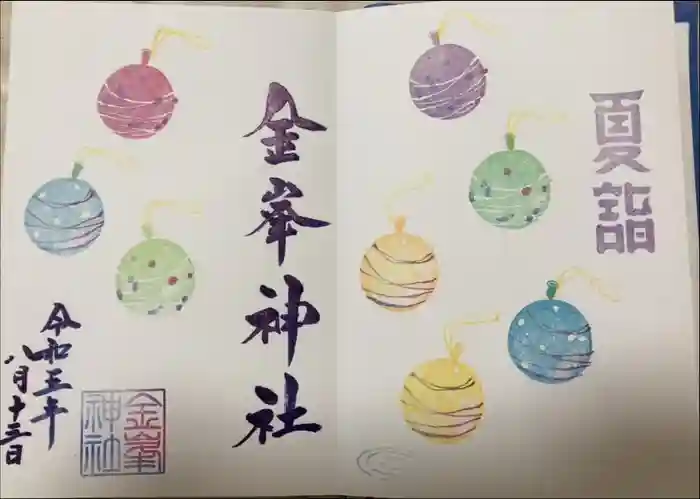 夏詣
金峯神社
令和五年
八月十三日
金峯
神社